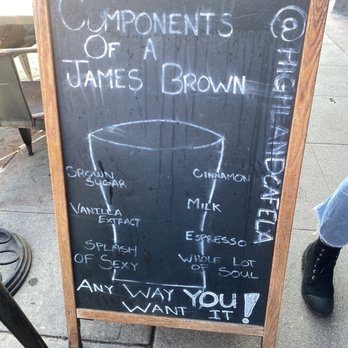 COMPONENTS
OF A
JAMES BROWN
@HIGHLANDCAFELA
CROWN
SUGAR
VANILLA
EXTRACT
SPLASH
OF SEXY
CINNAMON
MILK
ESPRESSO
WHOLE LOT
OF SOUL
ANY WAY YOU
WANT IT!